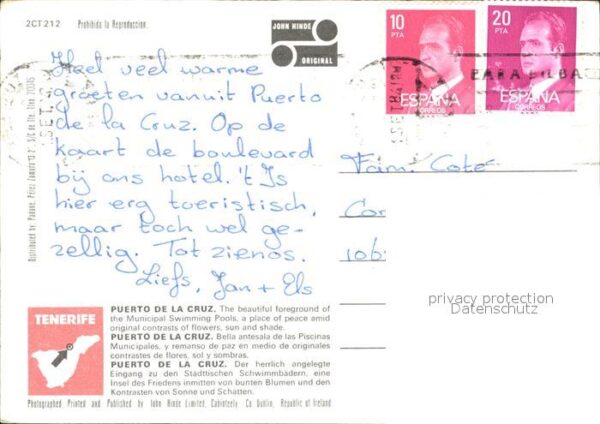 2CT212 Prohibida la Reproduccion.
JOHN HINDE
ORIGINAL
10
PTA
ESPAÑA
CORREOS
20
PTA
ESPAÑA
CORREOS
Heel veel warme
groeten vanuit Puerto
de la Cruz. Op de
kaart de boulevard
bij ons hotel. 't Is
hier erg toeristisch,
maar toch wel ge-
zellig. Tot ziens.
Liefs, Jan + Els
Fam. Coté
privacy protection
Datenschutz
TENERIFE
PUERTO DE LA CRUZ. The beautiful foreground of
the Municipal Swimming Pools, a place of peace amid
original contrasts of flowers, sun and shade.
PUERTO DE LA CRUZ. Bella antesala de las Piscinas
Municipales, y remanso de paz en medio de originales
contrastes de flores, sol y sombras.
PUERTO DE LA CRUZ. Der herrlich angelegte
Eingang zu den Städtischen Schwimmbädern, eine
Insel des Friedens inmitten von bunten Blumen und den
Kontrasten von Sonne und Schatten.
Photographed, Printed and Published by John Hinde Limited, Cabinteely, Co Dublin, Republic of Ireland